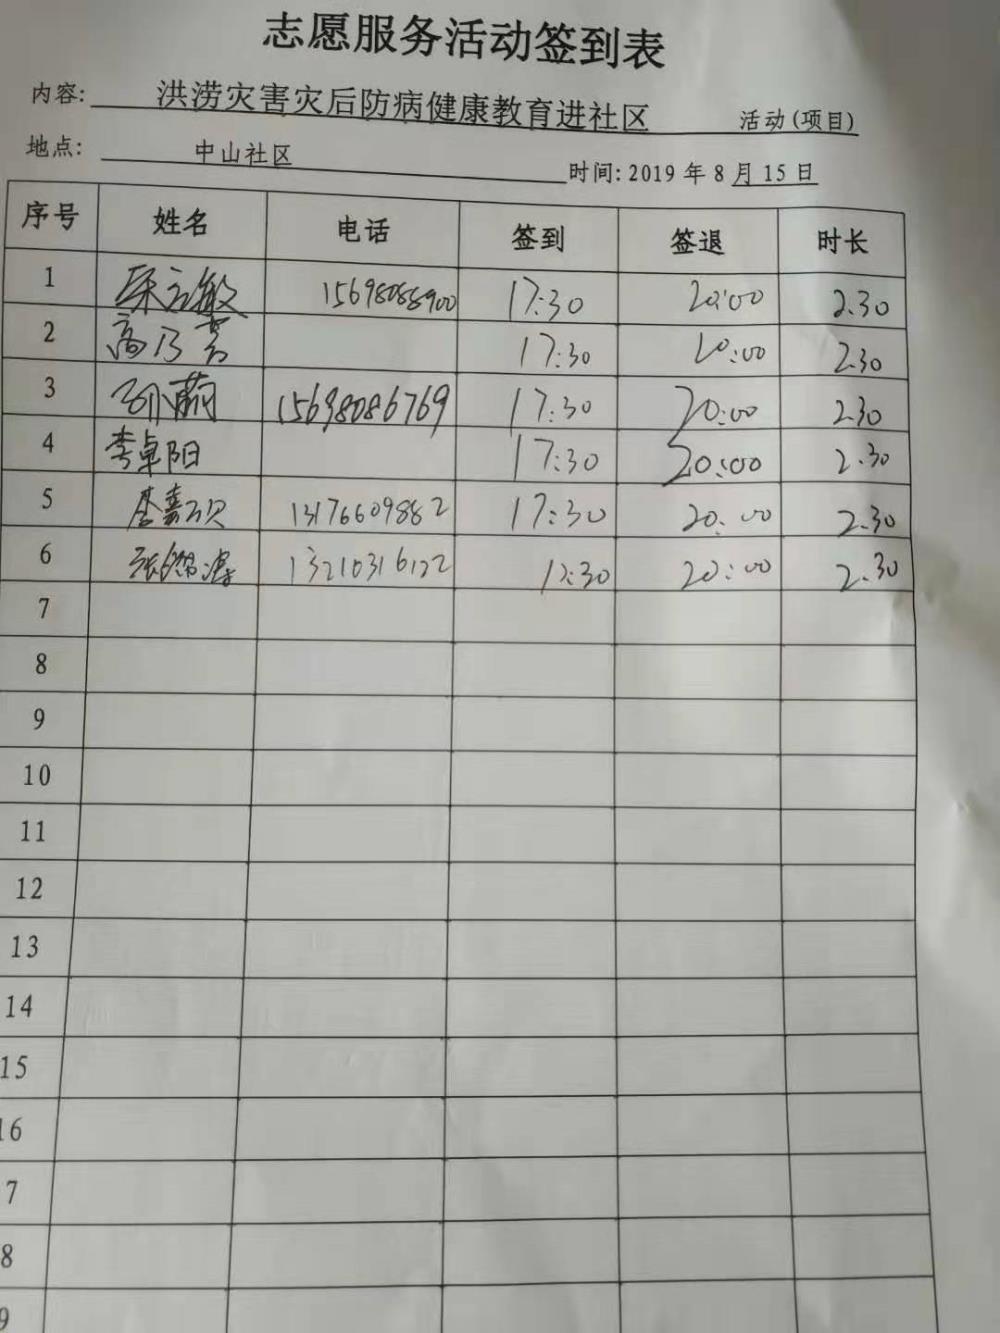 志愿服务活动签到表
内容: 洪涝灾害灾后防病健康教育进社区 活动(项目)
地点: 中山社区 时间: 2019 年 8 月 15 日
序号 姓名 电话 签到 签退 时长
1 15698088900 17:30 20:00 2.30
2 17:30 20:00 2.30
3 15698086769 17:30 20:00 2.30
4 李卓阳 17:30 20:00 2.30
5 13176609882 17:30 20:00 2.30
6 13210316122 17:30 20:00 2.30
7
8
9
10
11
12
13
14
15
16
7
8
9